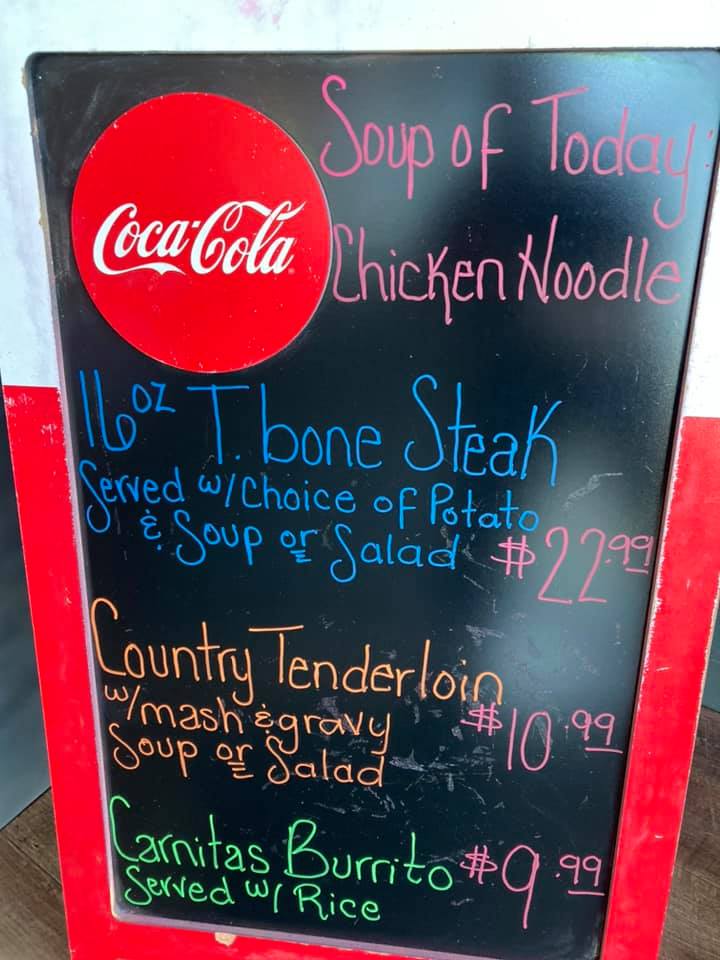 Coca-Cola
Soup of Today:
Chicken Noodle
16oz T.bone Steak
Served w/Choice of Potato
& Soup or Salad $22.99
Country Tenderloin
w/mash & gravy $10.99
Soup or Salad
Carnitas Burrito $9.99
Served w/ Rice